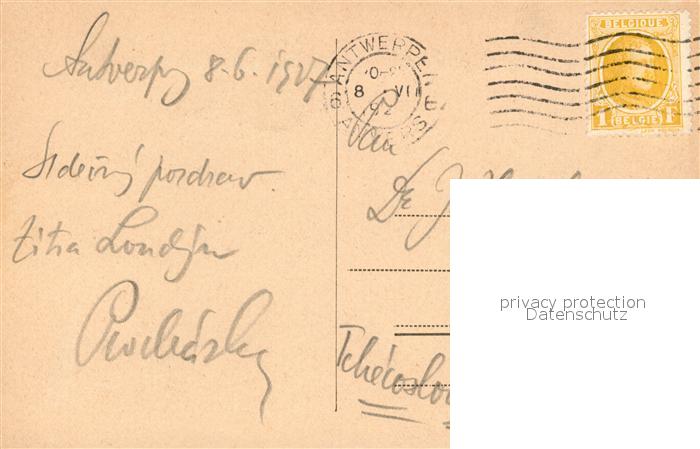 Antverpy 8.6.1927
Srdečný pozdrav
zítra Londýn
Procházka
ANTWERPEN
8 VI
ANVERS
BELGIQUE
1 F
BELGIË
Pan
Dr J
Tchécoslo
privacy protection
Datenschutz